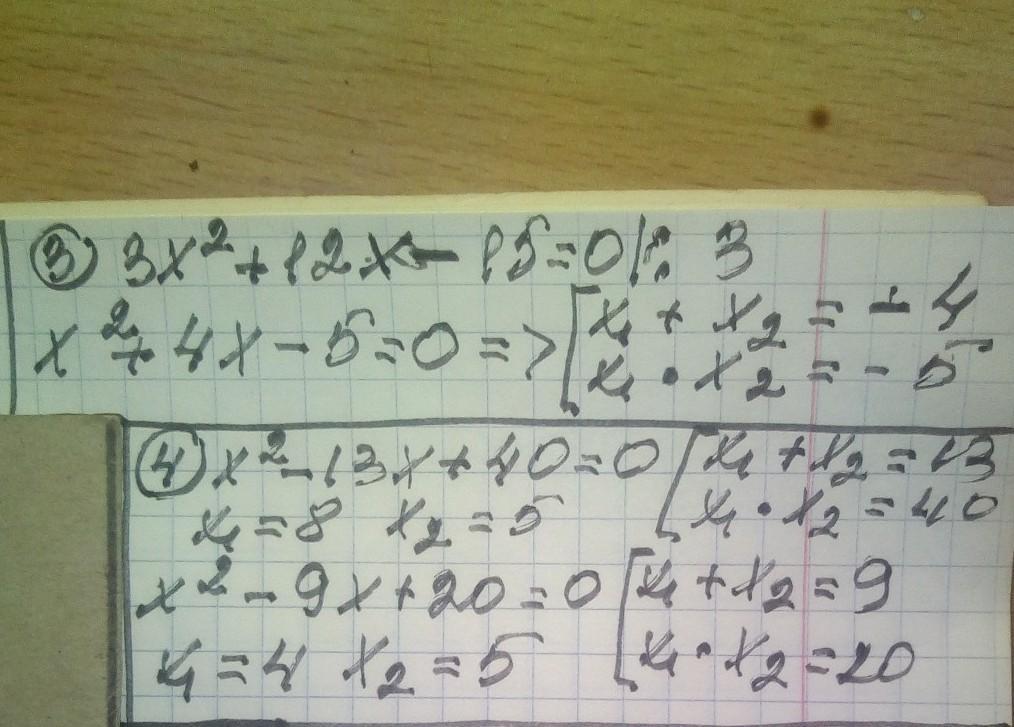 ③ 3x² + 12x - 15 = 0 |: 3
x² + 4x - 5 = 0 => [ x₁ + x₂ = - 4
x₁ · x₂ = - 5
④ x² - 13x + 40 = 0 [ x₁ + x₂ = 13
x₁ = 8 x₂ = 5 x₁ · x₂ = 40
x² - 9x + 20 = 0 [ x₁ + x₂ = 9
x₁ = 4 x₂ = 5 x₁ · x₂ = 20